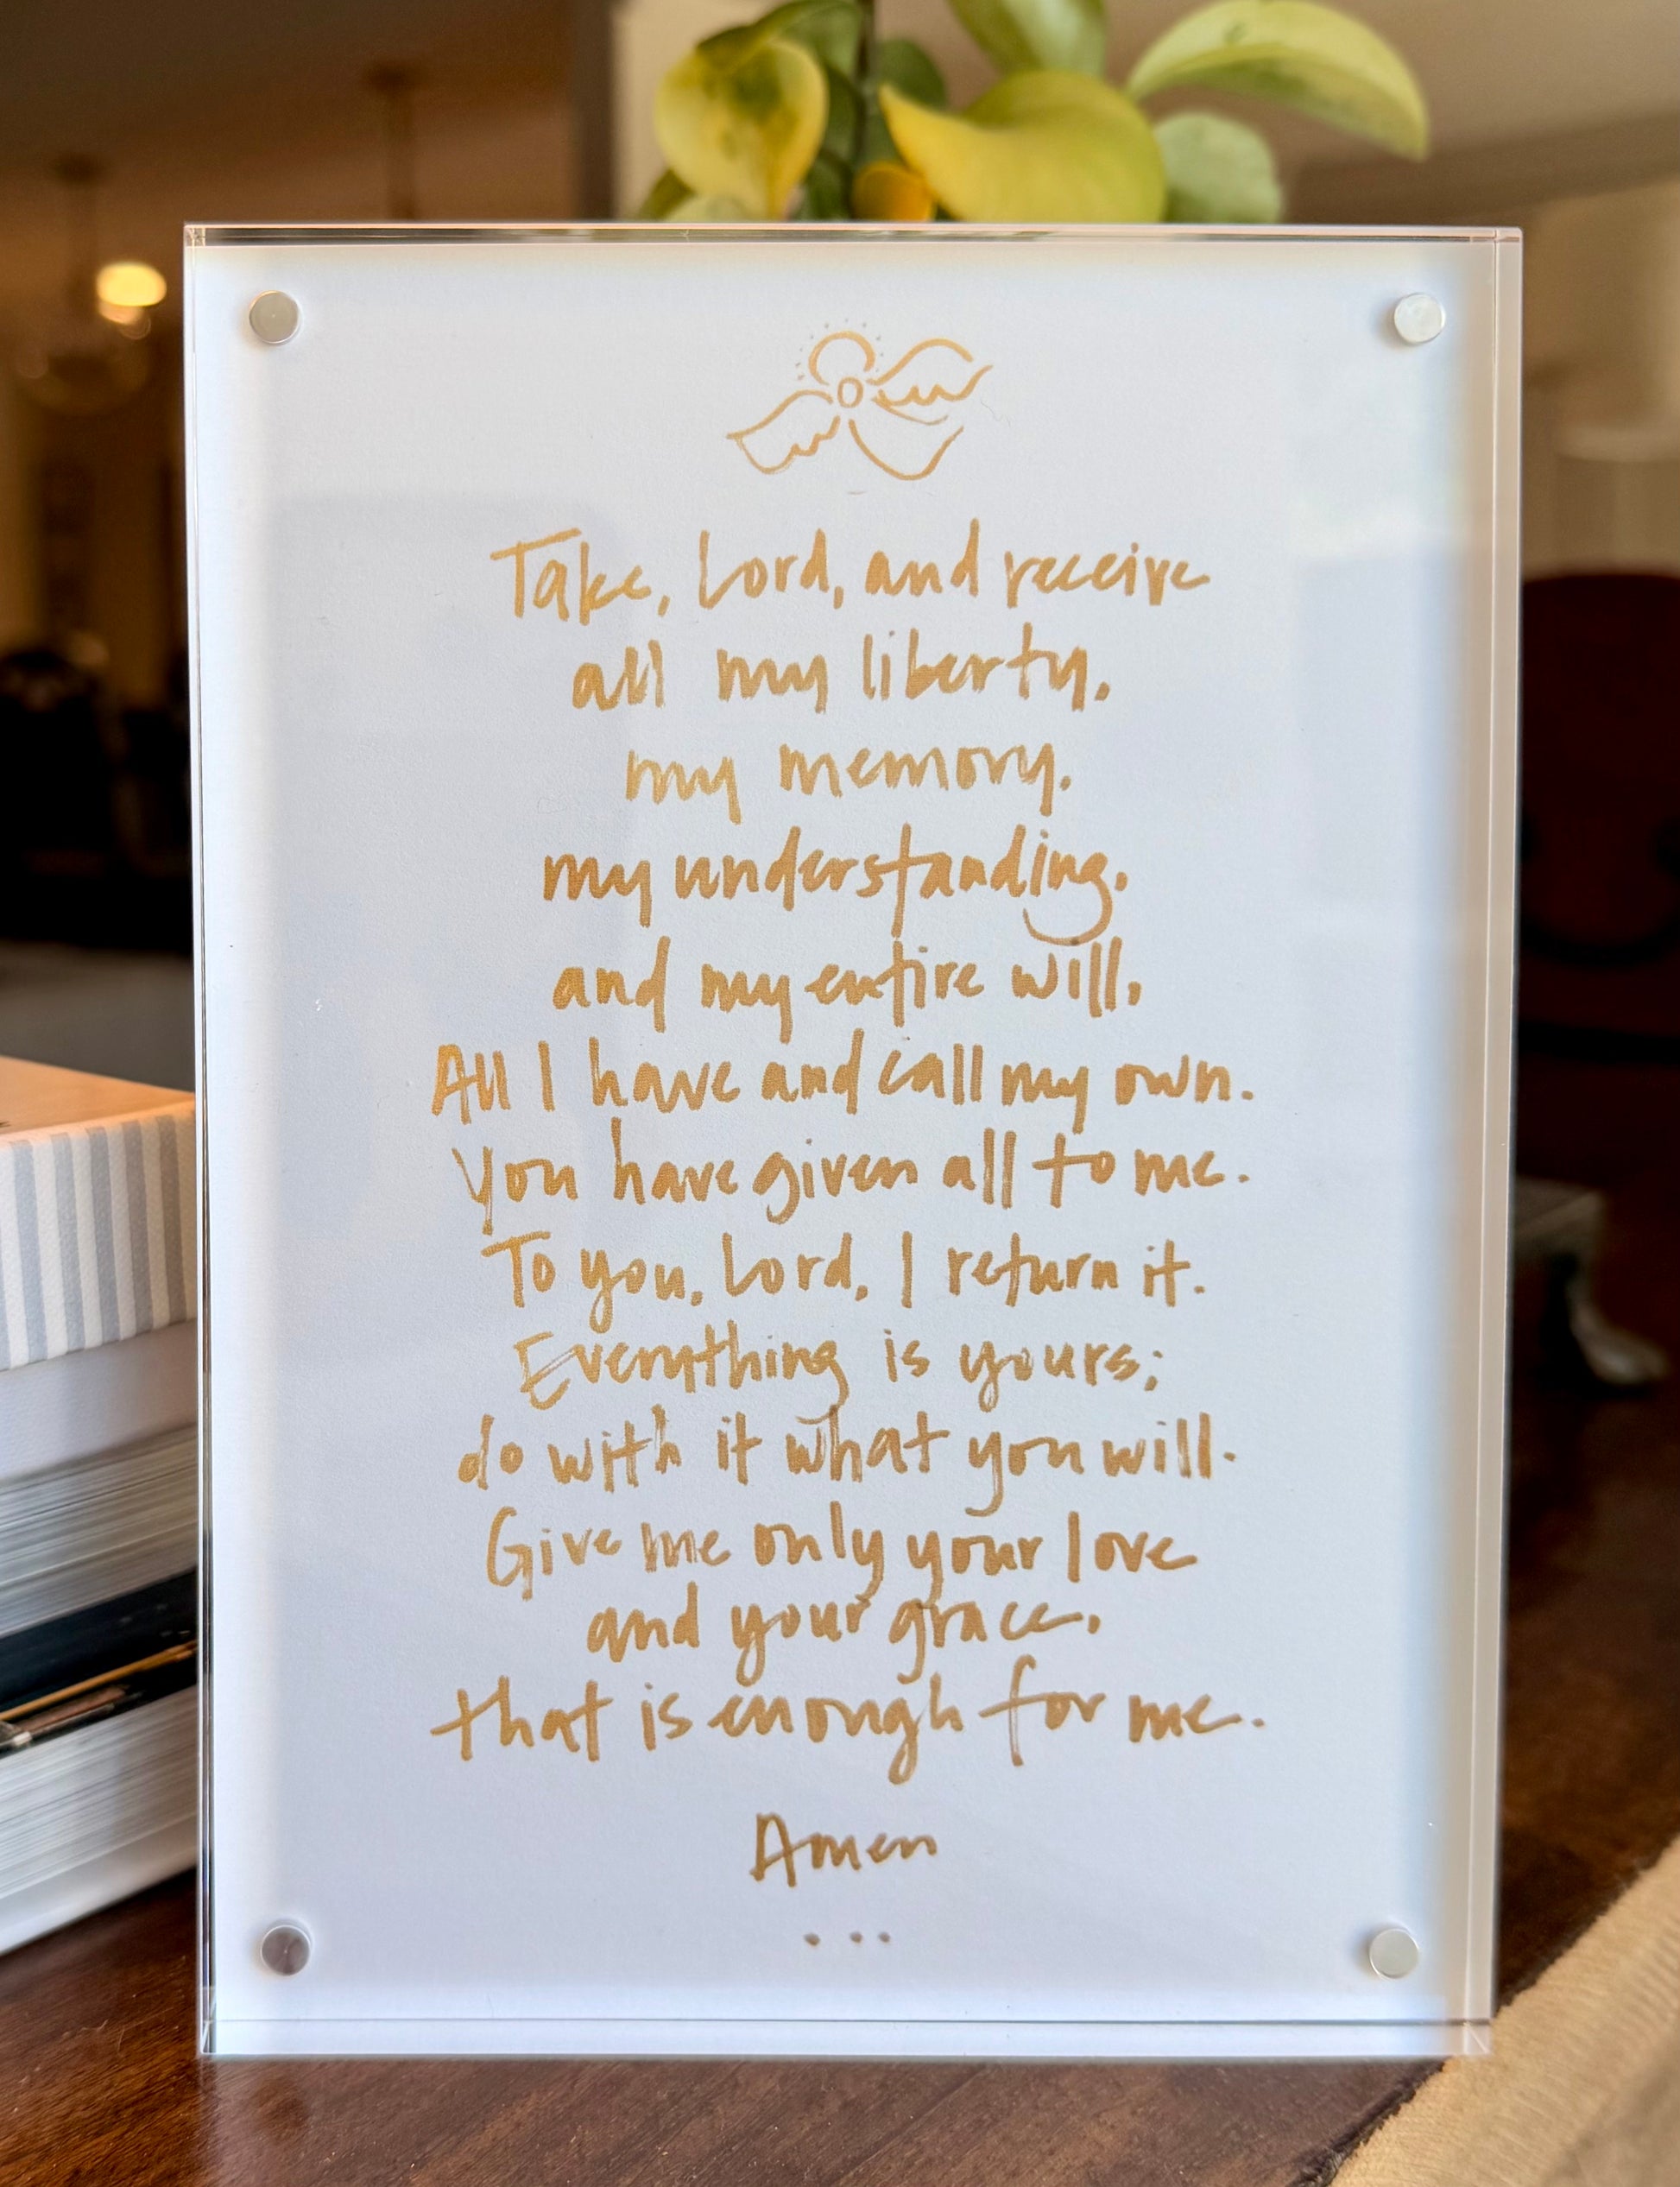 Take, Lord, and receive
all my liberty,
my memory,
my understanding,
and my entire will,
All I have and call my own.
You have given all to me.
To you, Lord, I return it.
Everything is yours;
do with it what you will.
Give me only your love
and your grace,
that is enough for me.
Amen
...